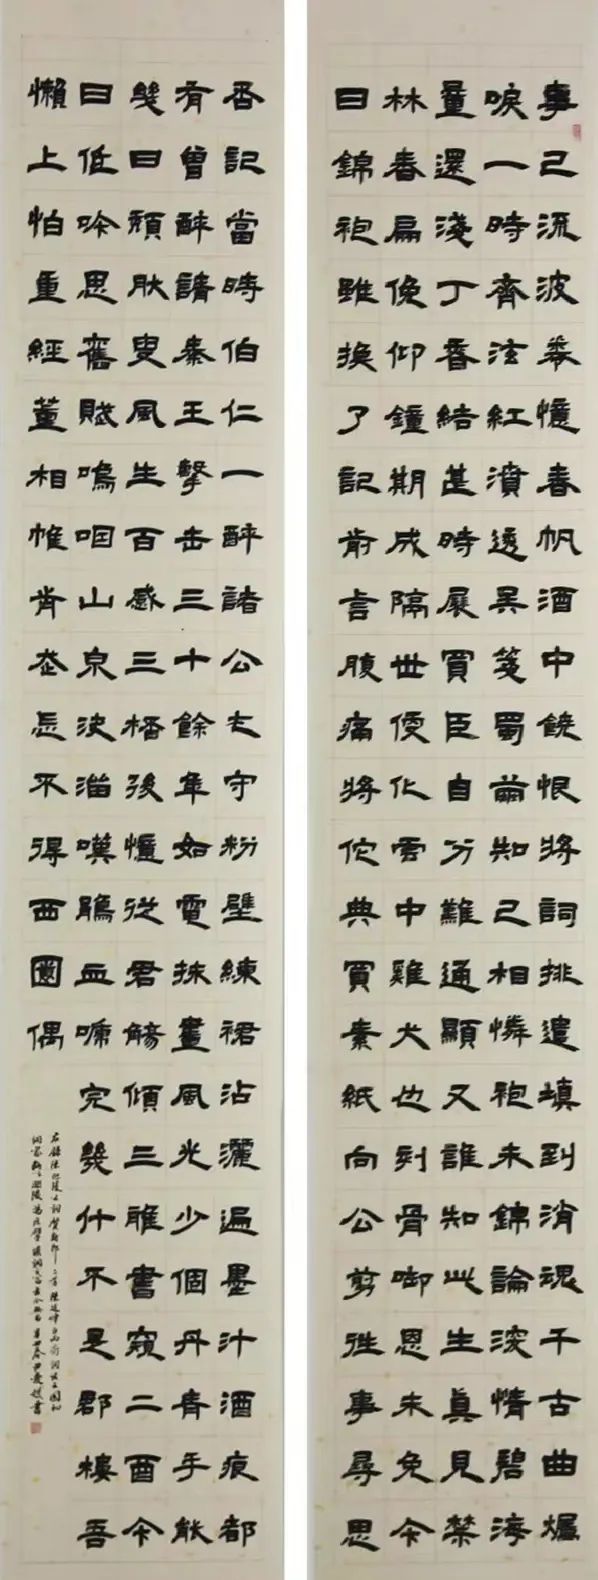 事已流波 憶春帆酒中饒恨將詞排遣填到消魂千古曲爐
唳一時齊泫紅濆透吳箋蜀繭知己相憐袍未錦論深情碧海
量還淺丁香結甚時展買臣自分難通顯又誰知此生真見禁
林春扁俛仰鐘期成隔世便化雲中雞犬也刻骨啣恩未免今
日錦袍雖換了記前言腹痛將佗典買素紙向公剪往事尋思
否記當時伯仁一醉諸公 守粉壁練裙沾灑遍墨汁酒痕都
有曾醉請秦王擊缶三十餘年如電抹畫風光少個丹青手能
幾日頹肰叟風生百感三桮後憶從君觴傾三雅書窺二酉今
日低吟思舊賦嗚咽山泉決溜嘆鵑血嘯完幾什不是郡樓吾
懶上怕重經董相帷 忘不得西園偶